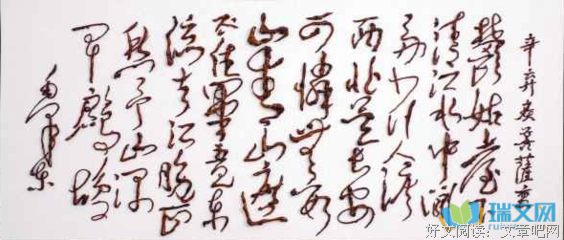 辛弃疾菩薩蛮
鬱姑臺下
清江水中间
多少行人泪
西北是長安
可憐無数
山青山遮
不住畢竟東
流去江晚正
愁予山深
闻鹧鸪
毛泽東
瑞文网
好文阅读：文章吧网